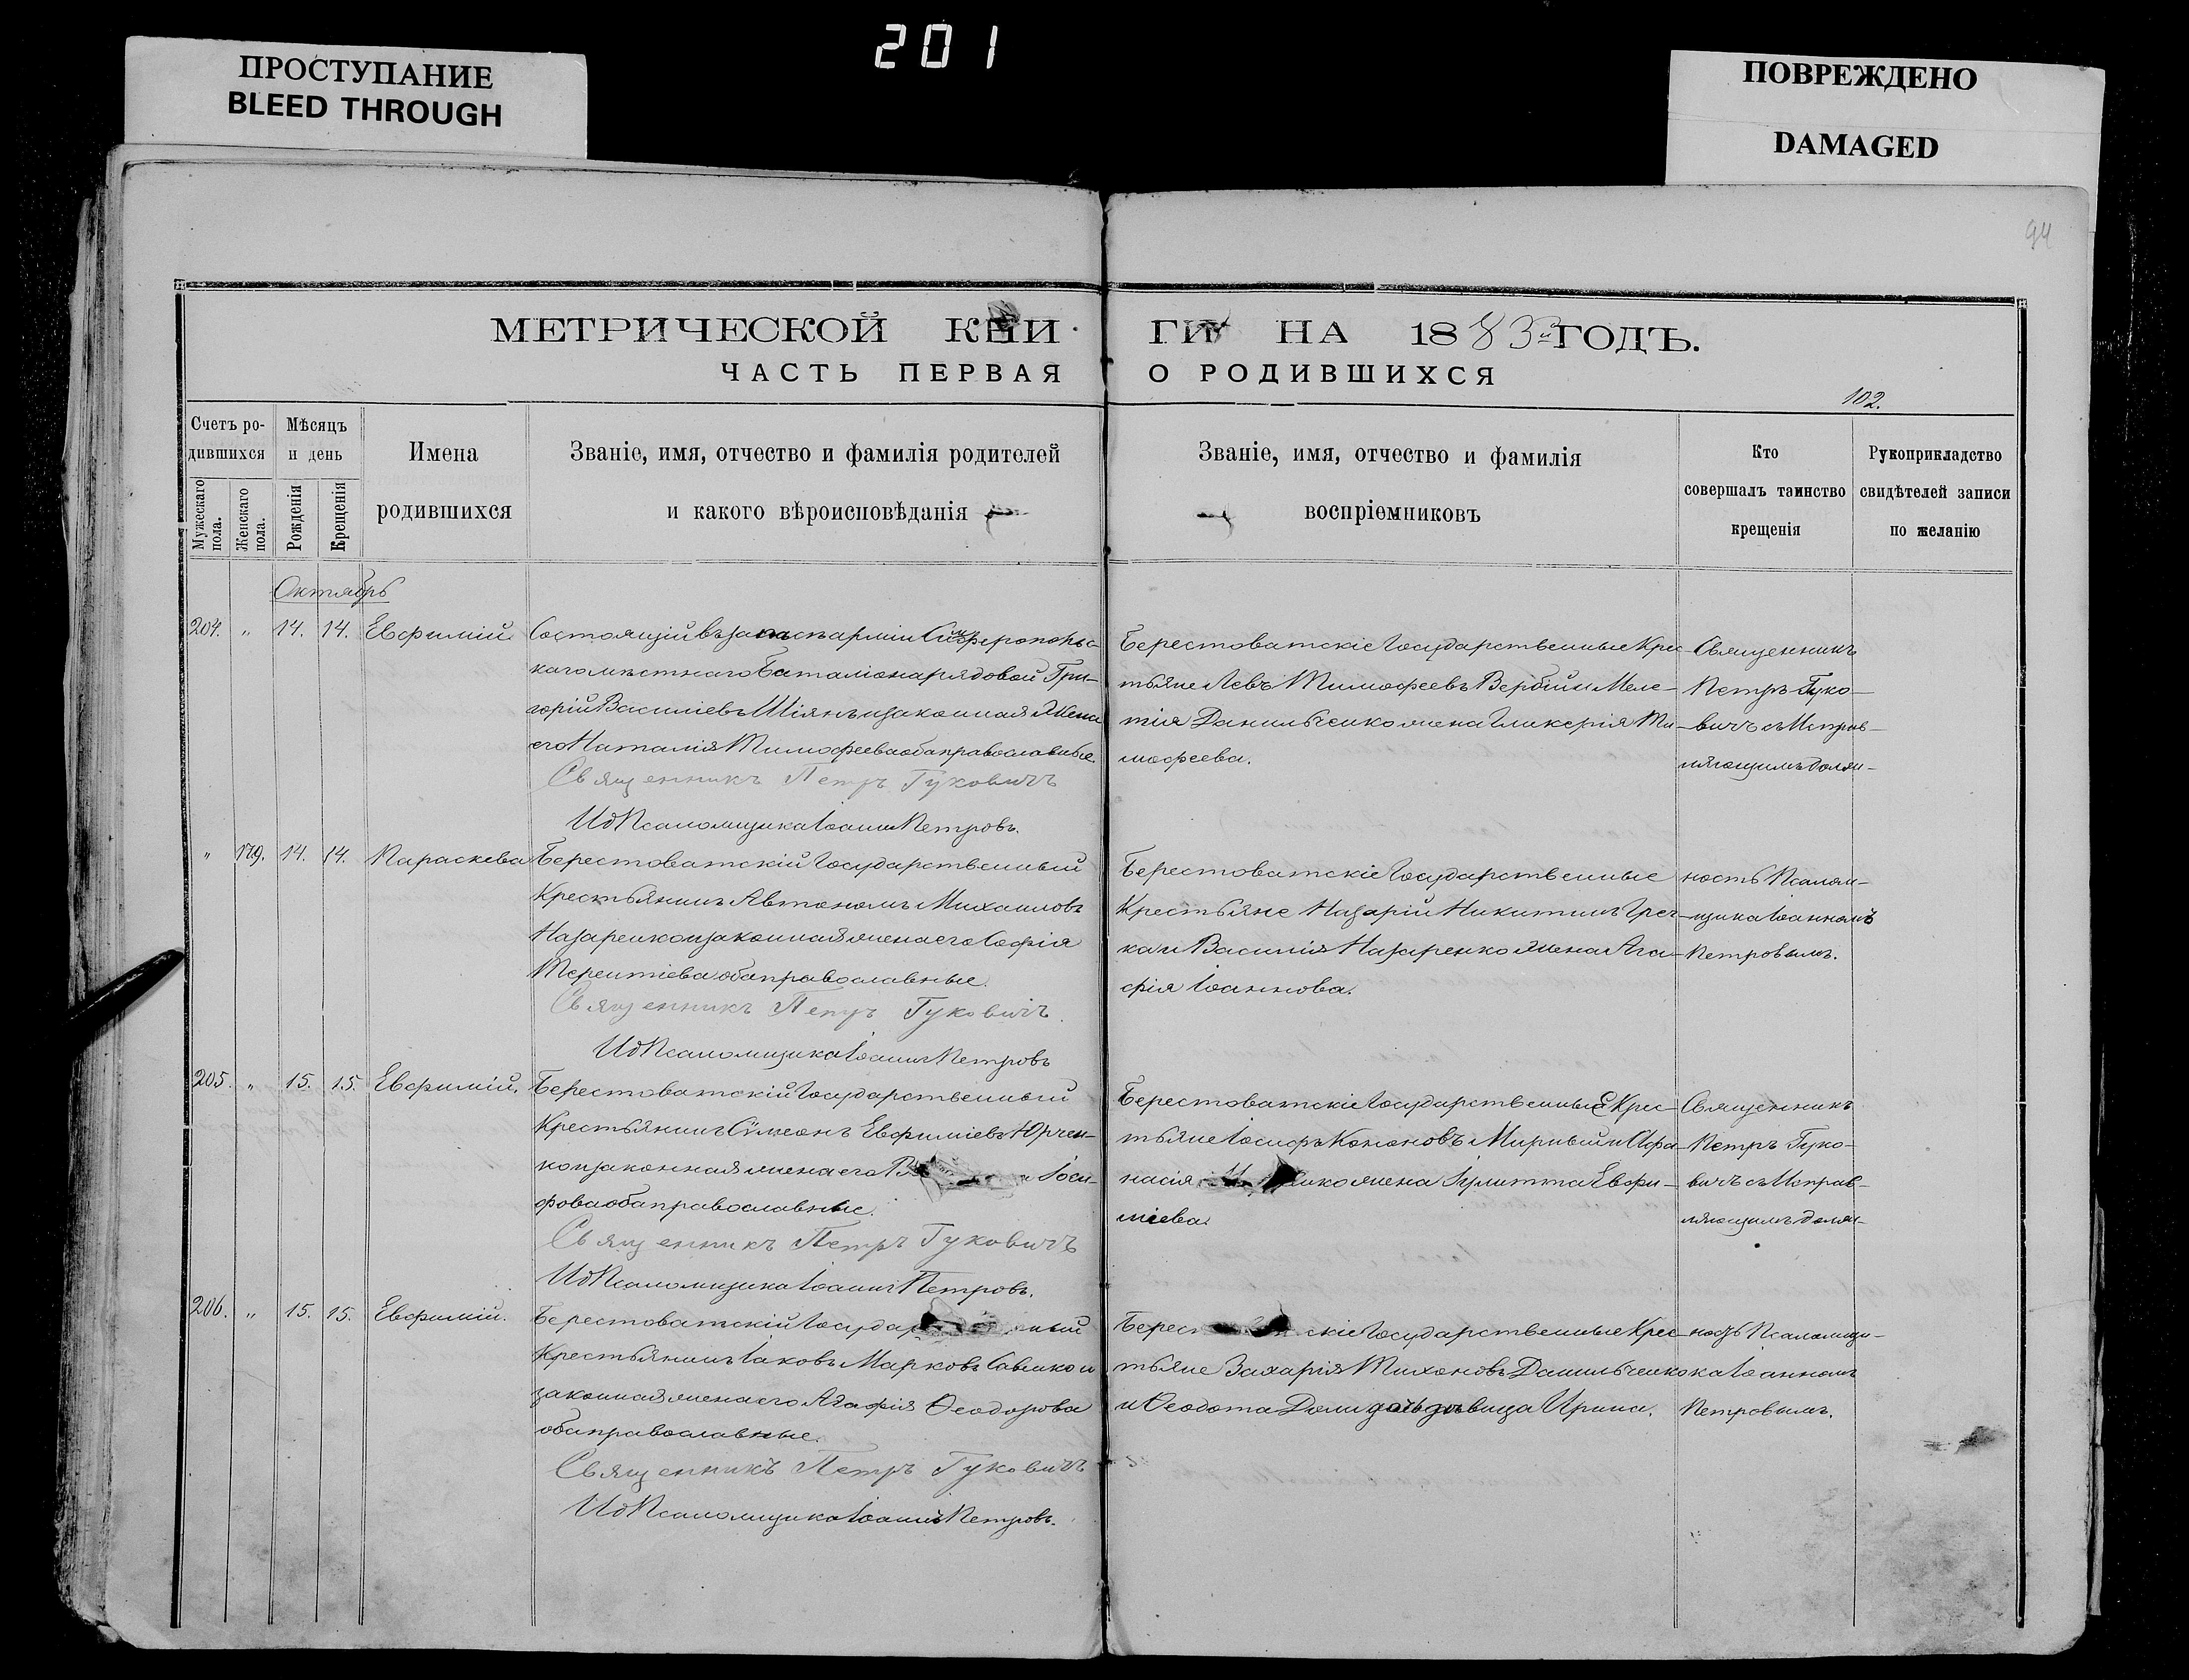 201
ПРОСТУПАНИЕ
BLEED THROUGH
ПОВРЕЖДЕНО
DAMAGED
94
МЕТРИЧЕСКОЙ КНИ
ГИ НА 1883й ГОДЪ.
ЧАСТЬ ПЕРВАЯ
О РОДИВШИХСЯ
102.
Счетъ родившихся
Мужескаго пола.
Женскаго пола.
Мѣсяцъ и день
Рожденія
Крещенія
Имена родившихся
Званіе, имя, отчество и фамилія родителей
и какого вѣроисповѣданія
Званіе, имя, отчество и фамилія
воспріемниковъ
Кто
совершалъ таинство
крещенія
Рукоприкладство
свидѣтелей записи
по желанію
Октябрь
204. " 14. 14. Евфимій.
Состоящій въ запасѣ арміи Симферопольс-
каго мѣстнаго баталіона рядовой Гри-
горій Василіевъ Шіянъ и законная жена
его Наталія Тимофеева оба православные.
Священникъ Петръ Гуковичъ
И д Псаломщика Іоаннъ Петровъ.
Берестоватскіе Государственные Крес-
тьяне Левъ Тимофеевъ Вербій и Меле-
тія Данильченко жена Гликерія Ти-
мофеева.
Священникъ
Петръ Гуко-
вичъ съ Исправ-
ляющимъ долж-
" 179. 14. 14. Параскева
Берестоватскій Государственный
Крестьянинъ Автономъ Михаиловъ
Назаренко и законная жена его Софія
Терентіева оба православные.
Священникъ Петръ Гуковичъ.
И д Псаломщика Іоаннъ Петровъ
Берестоватскіе Государственные
Крестьяне Назарій Никитинъ Греч-
ка и Василія Назаренко жена Ага-
фія Іоаннова.
ность Псалом-
щика Іоанномъ
Петровымъ.
205. " 15. 15. Евфимій.
Берестоватскій Государственный
Крестьянинъ Сѵмеонъ Евфиміевъ Юрчен-
ко и законная жена его Іоси-
фова оба православные.
Священникъ Петръ Гуковичъ
И д Псаломщика Іоаннъ Петровъ.
Берестоватскіе Государственные Крес-
тьяне Іосифъ Кононовъ Мирный и Афа-
насія жена Іулитта Евфи-
міева.
Священникъ
Петръ Гуко-
вичъ съ Исправ-
ляющимъ долж-
206. " 15. 15. Евфимій.
Берестоватскій Государ ный
Крестьянинъ Іаковъ Марковъ Савенко и
законная жена его Агафія Ѳеодорова
оба православные.
Священникъ Петръ Гуковичъ
И д Псаломщика Іоаннъ Петровъ.
Берес скіе Государственные Крес-
тьяне Захарія Тихоновъ Данильченко
и Ѳеодота дочь дѣвица Ирина.
ность Псаломщи-
ка Іоанномъ
Петровымъ.